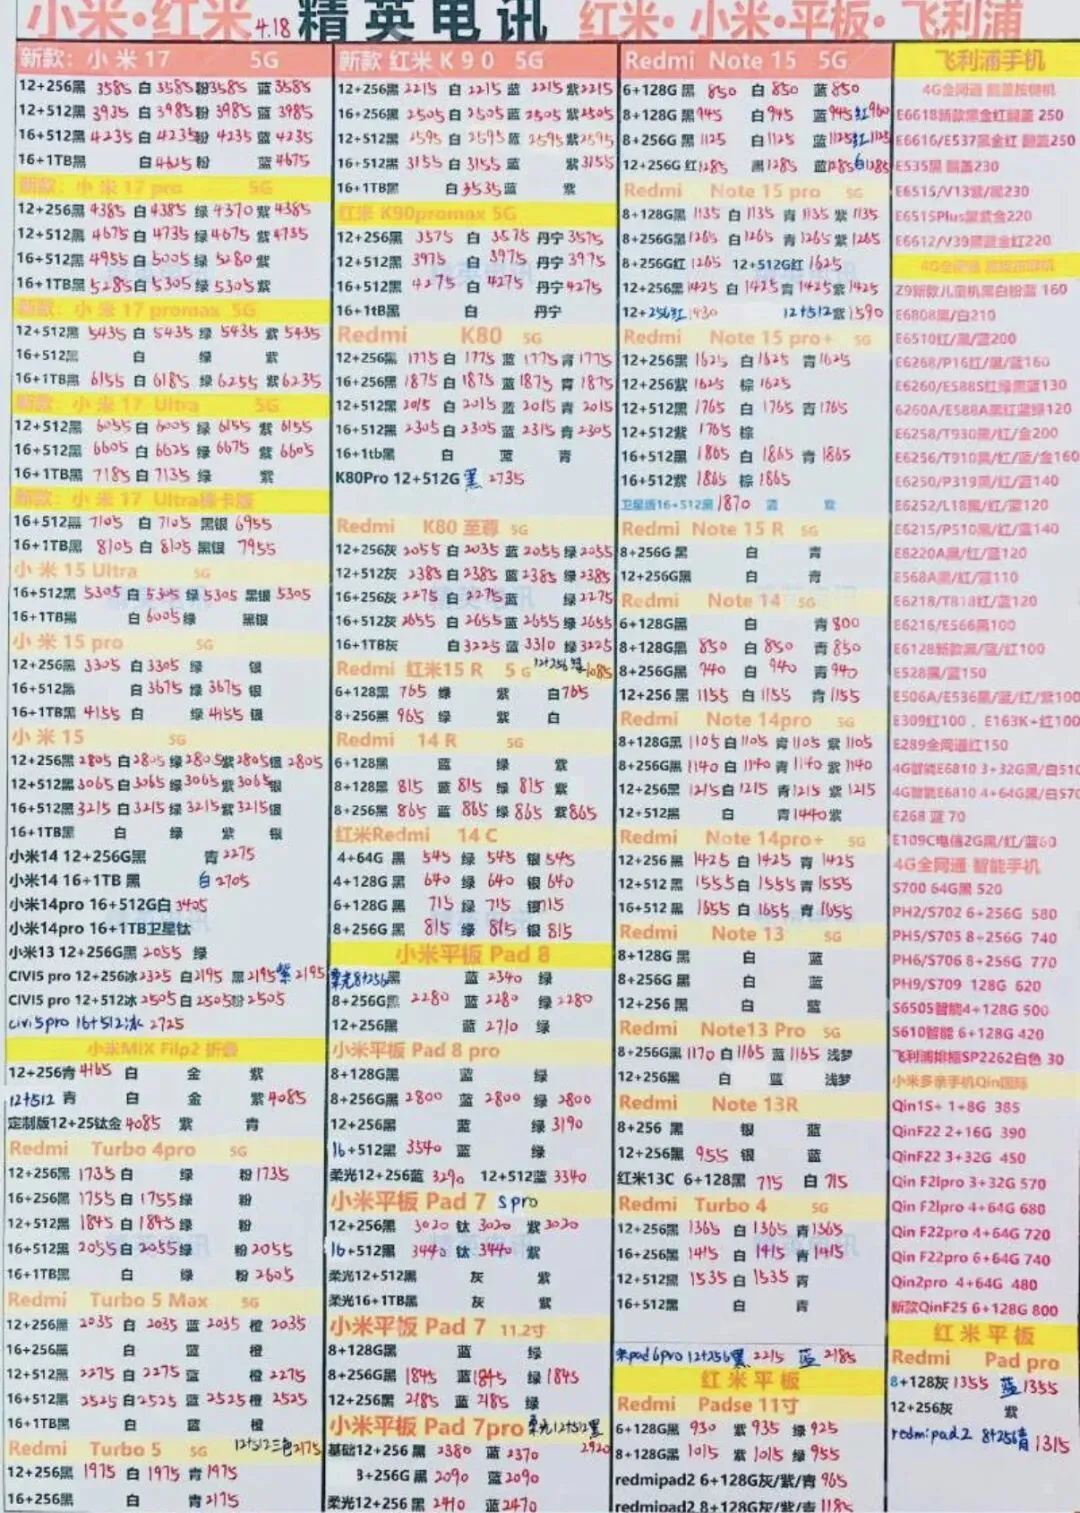 小米·红米 4.18 精英电讯 红米·小米·平板·飞利浦
新款: 小米17 5G
12+256黑 3585 白 3585 粉 3585 蓝 3585
12+512黑 3935 白 3985 粉 3985 蓝 3985
16+512黑 4235 白 4235 粉 4235 蓝 4235
16+1TB黑 白 4625 粉 蓝 4675
新款: 小米17 pro 5G
12+256黑 4385 白 4385 绿 4370 紫 4385
12+512黑 4675 白 4735 绿 4675 紫 4735
16+512黑 4955 白 5005 绿 5280 紫
16+1TB黑 5285 白 5305 绿 5305 紫
新款: 小米17 promax 5G
12+512黑 5435 白 5435 绿 5435 紫 5435
16+512黑 白 绿 紫
16+1TB黑 6155 白 6185 绿 6255 紫 6235
新款: 小米17 Ultra 5G
12+512黑 6055 白 6005 绿 6155 紫 6155
16+512黑 6605 白 6625 绿 6675 紫 6605
16+1TB黑 7185 白 7135 绿 紫
新款: 小米17 Ultra徕卡版
16+512黑 7105 白 7105 黑银 6955
16+1TB黑 8105 白 8105 黑银 7955
小米15 Ultra 5G
16+512黑 5305 白 5305 绿 5305 黑银 5305
16+1TB黑 白 6005 绿 黑银
小米15 pro 5G
12+256黑 3305 白 3305 绿 银
16+512黑 白 3675 绿 3675 银
16+1TB黑 4155 白 绿 4155 银
小米15 5G
12+256黑 2805 白 2805 绿 2805 紫 2805 银 2805
12+512黑 3065 白 3265 绿 3065 紫 3065 银
16+512黑 3215 白 3215 绿 3215 紫 3215 银
16+1TB黑 白 绿 紫 银
小米14 12+256G黑 青 2275
小米14 16+1TB 黑 白 2705
小米14pro 16+512G白 3405
小米14pro 16+1TB卫星钛
小米13 12+256G黑 2055 绿
CIVI5 pro 12+256冰 2325 白 2195 黑 2195 紫 2195
CIVI5 pro 12+512冰 2505 白 2505 粉 2505
civi5pro 16+512冰 2725
小米MIX Filp2 折叠
12+256青 4165 白 金 紫
12+512 青 白 金 紫 4085
定制版12+25钛金 4085 紫 青
Redmi Turbo 4pro 5G
12+256黑 1735 白 绿 粉 1735
16+256黑 1755 白 1755 绿 粉
12+512黑 1845 白 1845 绿 粉
16+512黑 2055 白 2055 绿 粉 2055
16+1TB黑 白 绿 粉 2605
Redmi Turbo 5 Max 5G
12+256黑 2035 白 2035 蓝 2035 橙 2035
16+256黑 白 蓝 橙
12+512黑 2275 白 2275 蓝 橙 2275
16+512黑 2525 白 2525 蓝 2525 橙 2525
16+1TB黑 白 蓝 橙
Redmi Turbo 5 5G 12+512三色 2175
12+256黑 1975 白 1975 青 1975
16+256黑 白 青 2175
新款 红米 K90 5G
12+256黑 2215 白 2215 蓝 2215 紫 2215
16+256黑 2505 白 2505 蓝 2505 紫 2505
12+512黑 2595 白 2595 蓝 2595 紫 2595
16+512黑 3155 白 3155 蓝 紫 3155
16+1TB黑 白 3535 蓝 紫
红米 K90promax 5G
12+256黑 3575 白 3575 丹宁 3575
12+512黑 3975 白 3975 丹宁 3975
16+512黑 4275 白 4275 丹宁 4275
16+1tB黑 白 丹宁
Redmi K80 5G
12+256黑 1775 白 1775 蓝 1775 青 1775
16+256黑 1875 白 1875 蓝 1875 青 1875
12+512黑 2015 白 2015 蓝 2015 青 2015
16+512黑 2305 白 2305 蓝 2315 青 2305
16+1tb黑 白 蓝 青
K80Pro 12+512G 黑 2735
Redmi K80 至尊 5G
12+256灰 2055 白 2035 蓝 2055 绿 2055
12+512灰 2385 白 2385 蓝 2385 绿 2385
16+256灰 2275 白 2275 蓝 绿 2275
16+512灰 2655 白 2655 蓝 2655 绿 2655
16+1TB灰 白 3225 蓝 3310 绿 3225
Redmi 红米15 R 5G 12+256 1085
6+128黑 765 绿 紫 白 765
8+256黑 965 绿 紫 白
Redmi 14 R 5G
6+128黑 蓝 绿 紫
8+128黑 815 蓝 815 绿 815 紫
8+256黑 865 蓝 865 绿 865 紫 865
红米Redmi 14 C
4+64G 黑 545 绿 545 银 545
4+128G 黑 640 绿 640 银 640
6+128G 黑 715 绿 715 银 715
8+256G 黑 815 绿 815 银 815
小米平板 Pad 8
柔光8+256黑 蓝 2340 绿
8+256G黑 2280 蓝 2280 绿 2280
12+256黑 蓝 2710 绿
小米平板 Pad 8 pro
8+128G黑 蓝 绿
8+256G黑 2800 蓝 2800 绿 2800
12+256黑 蓝 绿 3190
16+512黑 3540 蓝 绿
柔光12+256蓝 3290 12+512蓝 3340
小米平板 Pad 7 s pro
12+256黑 3020 钛 3020 紫 3020
16+512黑 3440 钛 3440 紫
柔光12+512黑 灰 紫
柔光16+1TB黑 灰 紫
小米平饭 Pad 7 11.2寸
8+128G黑 蓝 绿
8+256G黑 1845 蓝 1845 绿 1845
12+256黑 2185 蓝 2185 绿
小米平板 Pad 7pro 柔光12+512黑 2920
基础12+256 黑 2380 蓝 2370
8+256G 黑 2090 蓝 2090
柔光12+256 黑 2410 蓝 2470
Redmi Note 15 5G
6+128G 黑 850 白 850 蓝 850
8+128G 黑 945 白 945 蓝 945 红 960
8+256G 黑 1125 白 1125 蓝 1125 红 1125
12+256G 红 1285 黑 1285 蓝 1285 白 1285
Redmi Note 15 pro 5G
8+128G黑 1135 白 1135 青 1135 紫 1135
8+256G黑 1265 白 1265 青 1265 紫 1265
8+256G红 1265 12+512G红 1625
12+256黑 1425 白 1425 青 1425 紫 1425
12+256红 1430 12+512紫 1590
Redmi Note 15 pro+ 5G
12+256黑 1625 白 1625 青 1625
12+256紫 1625 棕 1625
12+512黑 1765 白 1765 青 1765
12+512紫 1765 棕
16+512黑 1865 白 1865 青 1865
16+512紫 1865 棕 1865
卫星版16+512黑 1870 蓝 紫
Redmi Note 15 R 5G
8+256G 黑 白 青
12+256G黑 白 青
Redmi Note 14 5G
6+128G黑 白 青 800
8+128G黑 850 白 850 青 850
8+256G黑 940 白 940 青 940
12+256 黑 1155 白 1155 青 1155
Redmi Note 14pro 5G
8+128G黑 1105 白 1105 青 1105 紫 1105
8+256G黑 1140 白 1140 青 1140 紫 1140
12+256黑 1215 白 1215 青 1215 紫 1215
12+512黑 白 青 1440 紫
Redmi Note 14pro+ 5G
12+256 黑 1425 白 1425 青 1425
12+512 黑 1555 白 1555 青 1555
16+512 黑 1655 白 1655 青 1655
Redmi Note 13 5G
8+128G 黑 白 蓝
8+256G 黑 白 蓝
12+256 黑 白 蓝
Redmi Note13 Pro 5G
8+256G黑 1170 白 1165 蓝 1165 浅梦
12+256黑 白 蓝 浅梦
Redmi Note 13R
8+256 黑 银 蓝
12+256黑 955 银 蓝
红米13C 6+128黑 715 白 715
Redmi Turbo 4 5G
12+256黑 1365 白 1365 青 1365
16+256黑 1415 白 1415 青 1415
12+512黑 1535 白 1535 青
16+512黑 白 青
米pad 6pro 12+256黑 2215 蓝 2185
红米平板
Redmi Padse 11寸
6+128G黑 930 紫 935 绿 925
8+128G黑 1015 紫 1015 绿 955
redmipad2 6+128G灰/紫/青 965
redmipad2 8+128G灰/紫/青 1185
飞利浦手机
4G全网通 翻盖按键机
E6618新款黑金红翻盖 250
E6616/E537黑金红 翻盖250
E535黑 翻盖230
E6515/V13紫/黑230
E6515Plus黑紫金220
E6612/V39黑蓝金红220
4G全网通 直板按键机
Z9新款儿童机黑白粉蓝 160
E6808黑/白210
E6510红/黑/蓝200
E6268/P16红/黑/蓝160
E6260/E588S红绿黑蓝130
6260A/E588A黑红蓝绿120
E6258/T930黑/红/金200
E6256/T910黑/红/蓝/金160
E6250/P319黑/红/蓝140
E6252/L18黑/红/蓝120
E6215/P510黑/红/蓝140
E6220A黑/红/蓝120
E568A黑/红/蓝110
E6218/T818红/蓝120
E6216/E566黑100
E6128新款黑/蓝/红100
E528黑/蓝150
E506A/E536黑/蓝/红/紫100
E309红100 、E163K+红100
E289全网通红150
4G智能E6810 3+32G黑/白510
4G智能E6810 4+64G黑/白570
E268 蓝 70
E109C电信2G黑/红/蓝60
4G全网通 智能手机
S700 64G黑 520
PH2/S702 6+256G 580
PH5/S705 8+256G 740
PH6/S706 8+256G 770
PH9/S709 128G 620
S6505智能4+128G 500
S610智能 6+128G 420
飞利浦排插SP2262白色 30
小米多亲手机Qin国际
Qin1S+ 1+8G 385
QinF22 2+16G 390
QinF22 3+32G 450
Qin F2lpro 3+32G 570
Qin F2lpro 4+64G 680
Qin F22pro 4+64G 720
Qin F22pro 6+64G 740
Qin2pro 4+64G 480
新款QinF25 6+128G 800
红米平板
Redmi Pad pro
8+128灰 1355 蓝 1355
12+256灰 紫
redmipad.2 8+256青 1315